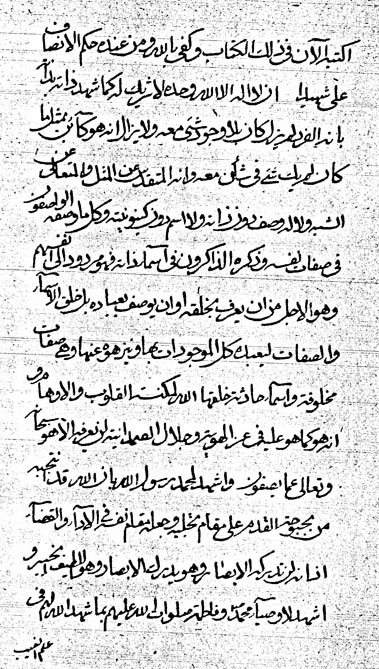 اكتب الآن في ذلك الكتاب وكفى بالله ومن عنده حكم الانصاف
على شهيدا ان لا اله الا الله وحده لا شريك له كما شهد ذاته بذاته
بانه الفرد لم يزل كان بلا وجود شيء معه ولا يزال انه هو كائن بمثل ما
كان لم يك شيء في شأن معه وانه المتقدس عن المثل والمتعال عن
الشبه ولا له وصف دون ذاته ولا اسم دون كينونيته وكل ما وصفه الواصفون
في صفات نفسه وذكره الذاكرون في اسماء ذاته فهو مردود الى انفسهم
وهو الاجل من ان يعرف بخلقه او ان يوصف بعباده بل خلق الاسماء
والصفات ليعبده كل الموجودات بها وينزهوه عنها وهي صفات
مخلوقة واسماء حادثة خلقها الله لمكنسة القلوب والاوهام و
انه هو كما هو عليه في عز الهوية وجلال الصمدانية لن يعرفه الا هو سبحانه
وتعالى عما يصفون واشهد لمحمد رسول الله بان الله قد انتجبه
من بحبوحة القدم على مقام تجليه وجعله مقام نفسه في الاداء والقضاء
اذ انه لن تدركه الابصار وهو يدرك الابصار وهو اللطيف الخبير و
اشهد لاوصياء محمد وفاطمة صلوات الله عليهم بما شهد الله لهم في
علم الغيب